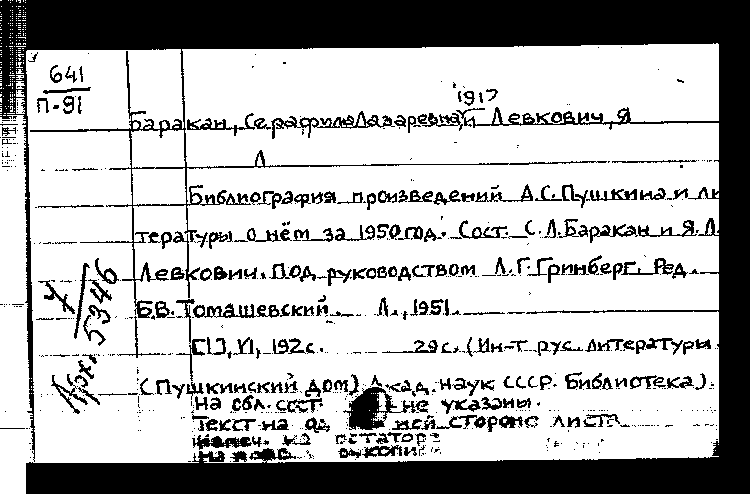 641
П-91
1917
Баракан, Серафима Лазаревна, и Левкович, Я
Л
Библиография произведений А.С. Пушкина и ли
тературы о нём за 1950 год. Сост. С.Л. Баракан и Я.Л.
Левкович. Под руководством Л.Г. Гринберг. Ред.
Б.В. Томашевский. Л., 1951.
[1], VI, 192 с. 29 с. (Ин-т рус. литературы
(Пушкинский дом) Акад. наук СССР. Библиотека).
На обл. сост. не указаны.
Текст на од ней стороне листа
Арх. 7/5346